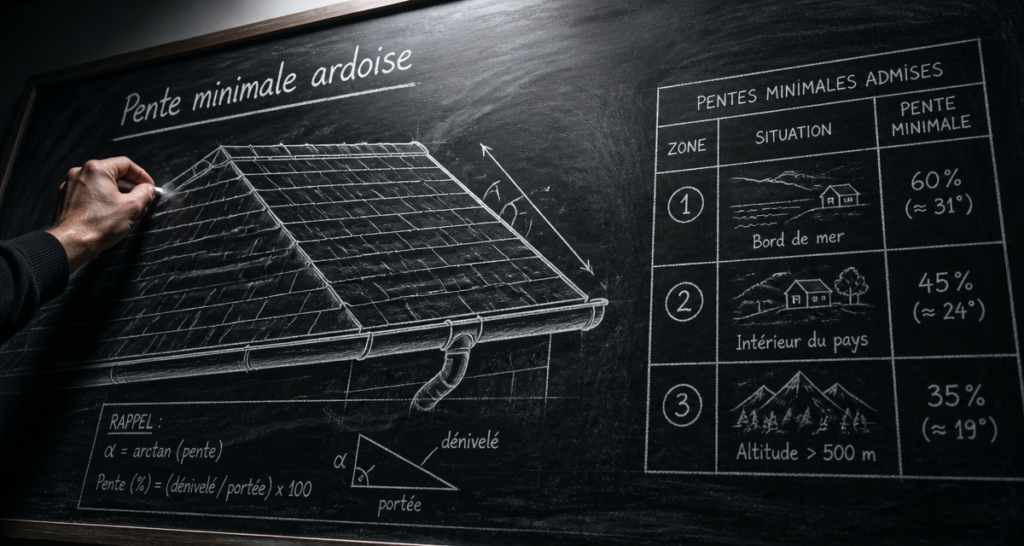 Pente minimale ardoise
PENTES MINIMALES ADMISES
ZONE
SITUATION
PENTE
MINIMALE
1
Bord de mer
60%
(≈ 31°)
2
Intérieur du pays
45%
(≈ 24°)
3
Altitude > 500 m
35%
(≈ 19°)
RAPPEL :
α = arctan (pente)
Pente (%) = (dénivelé / portée) x 100
α
dénivelé
portée